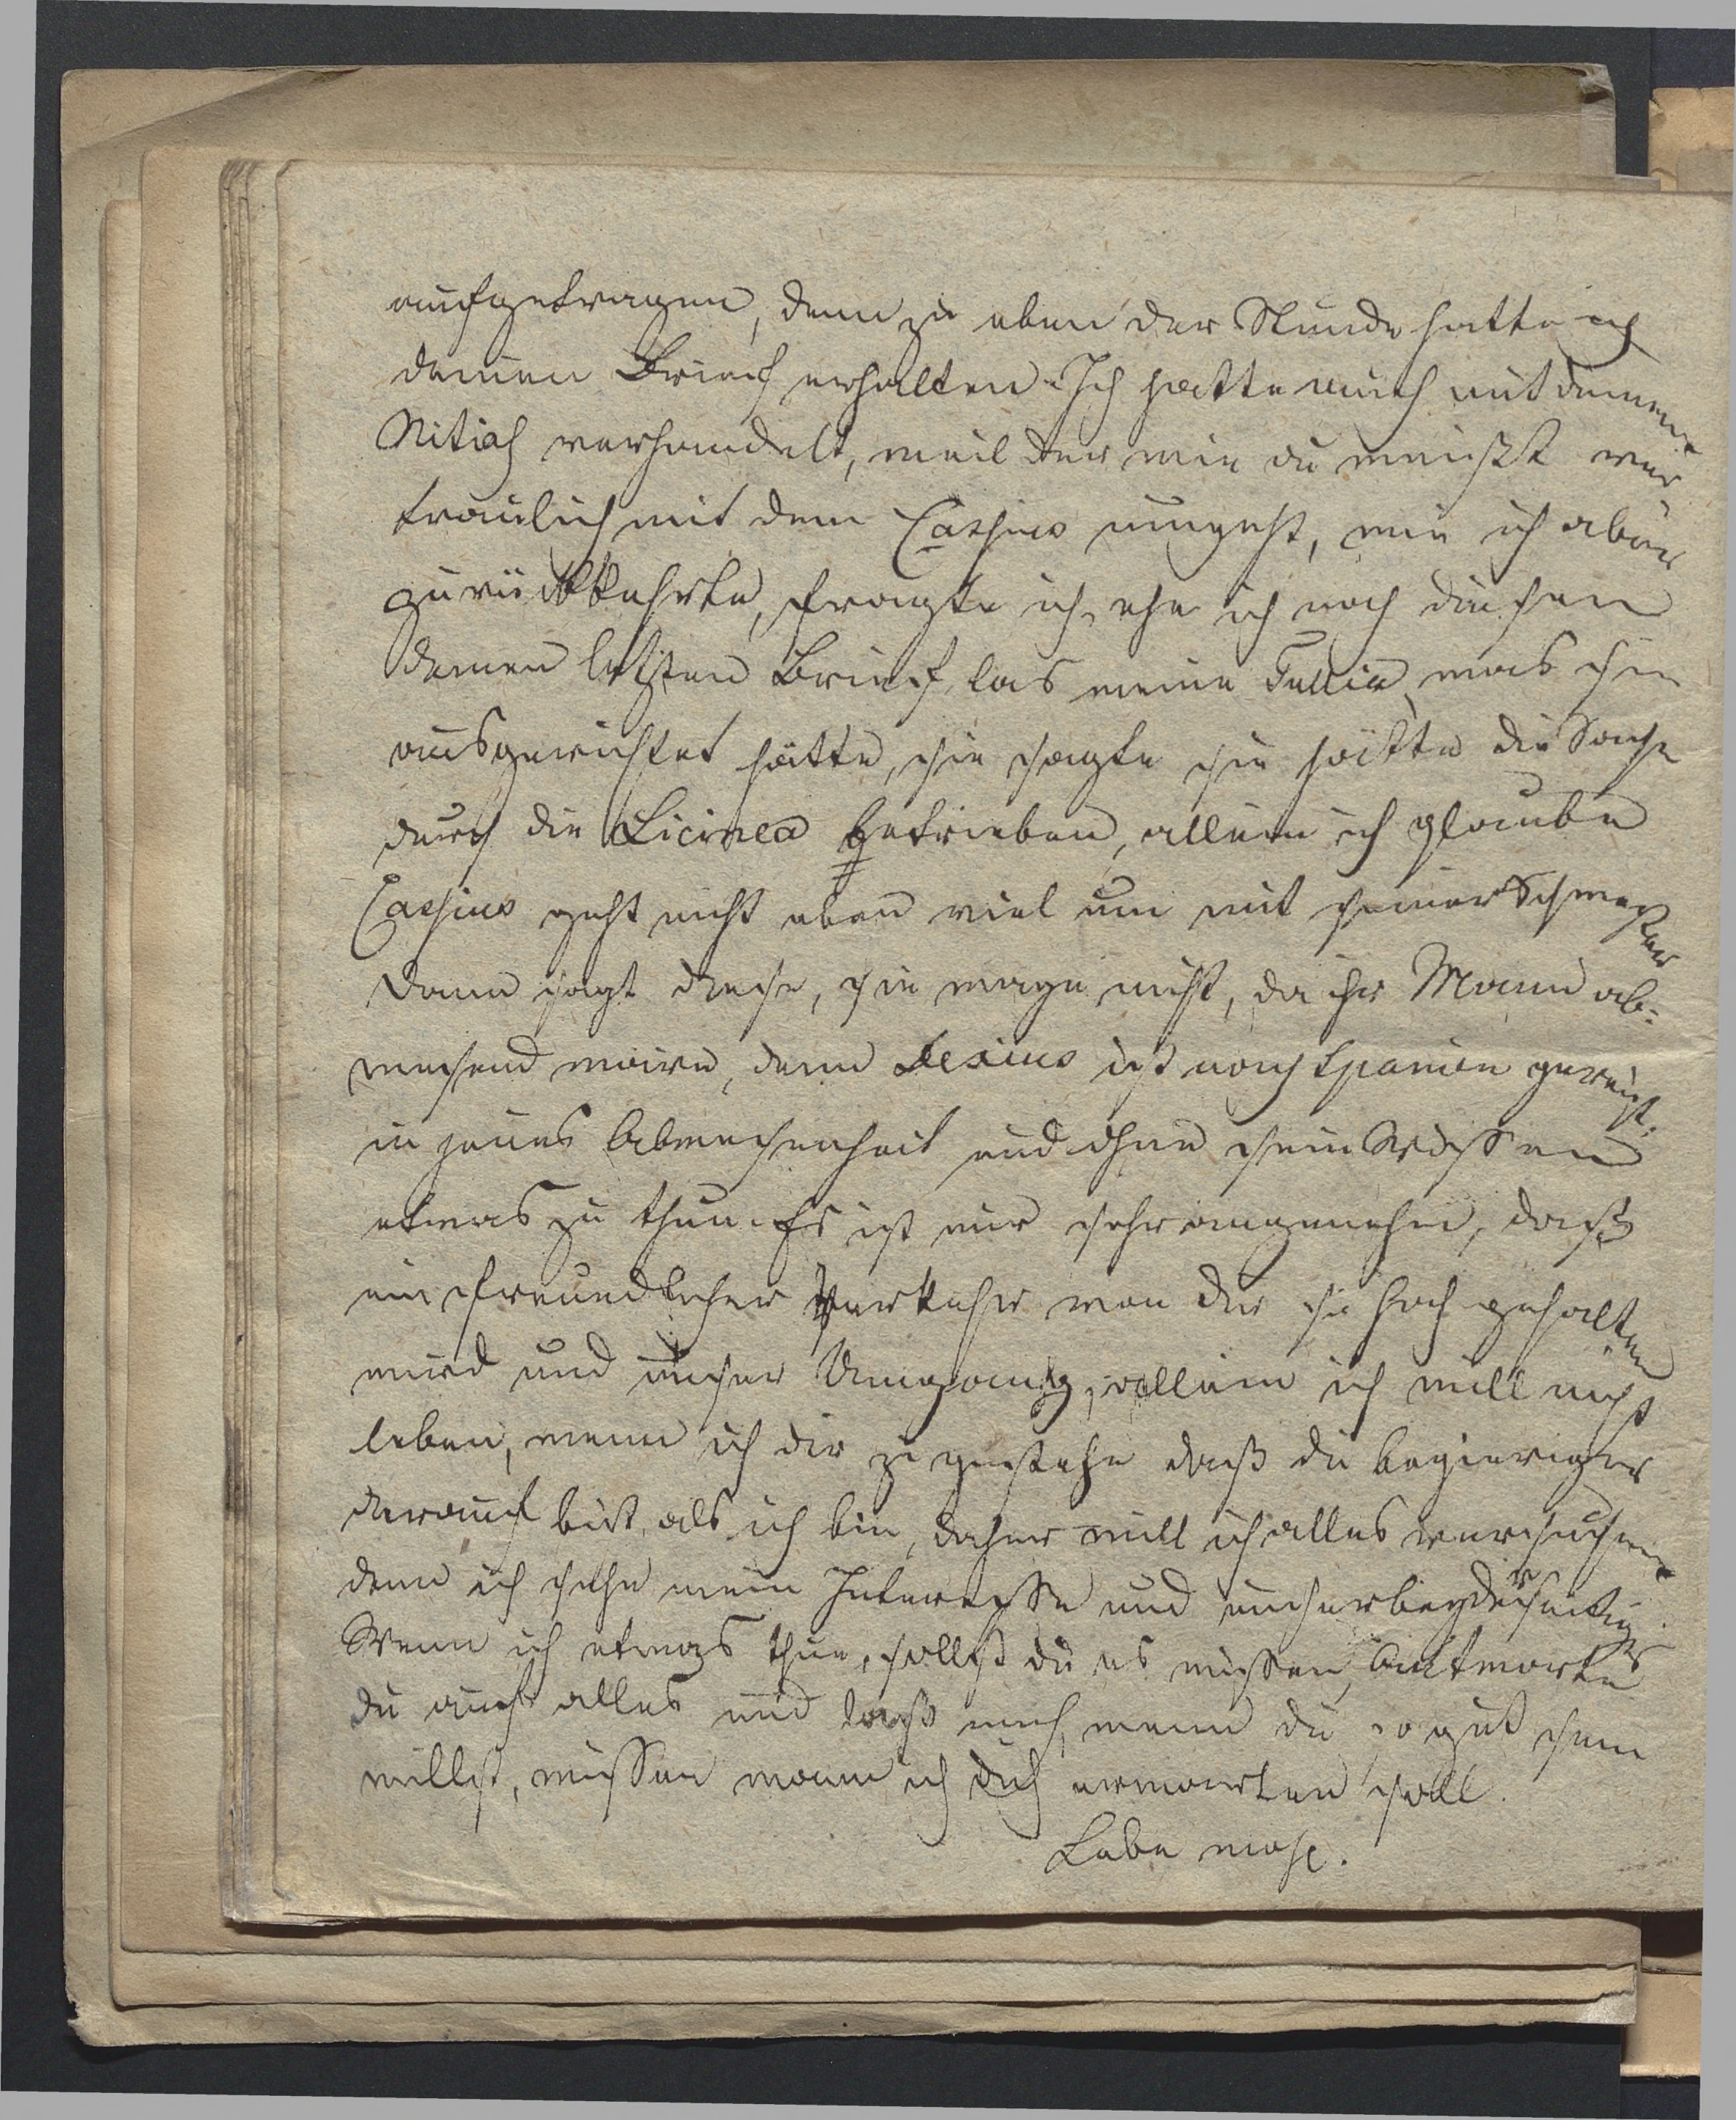 aufgetragen, denn zu eben der Stunde hatte ich
deinen Brief erhalten. Ich hatte auch mit deinem
verhandelt, weil der wie du weißt ver
traulich mit dem Cassius umgeht, wie ich aber
zurükkehrte, fragte ich, ehe ich noch diesen
deinen letzten Brief las meine Tullia, was sie
ausgerichtet hätte, sie sagte sie hätte die Sache
durch die Licinea betrieben, allein ich glaube
Cassius geht nicht eben viel um mit seiner Schwester
Dann sagt diese, sie wage nicht, da ihr Mann ab-
wesend wäre, denn ist nach Spanien gereist.
in jenes Abwesenheit und ohne sein Wissen
etwas zu thun. Es ist mir sehr angenehm, daß
ein freundlicher Verkehr von dir so hoch gehalten
wird und unser Umgang, allein ich will nicht
leben, wenn ich dir zugestehe daß du begieriger
darauf bist, als ich bin, daher will ich alles versuchen
denn ich sehe mein Interesse und unser beyderseitiges
Wenn ich etwas thue, sollst du es wissen, Antworte
du auf alles und laß mich, wenn du so gut sein
willst, wissen wann ich dich erwarten soll.
Lebe wohl.